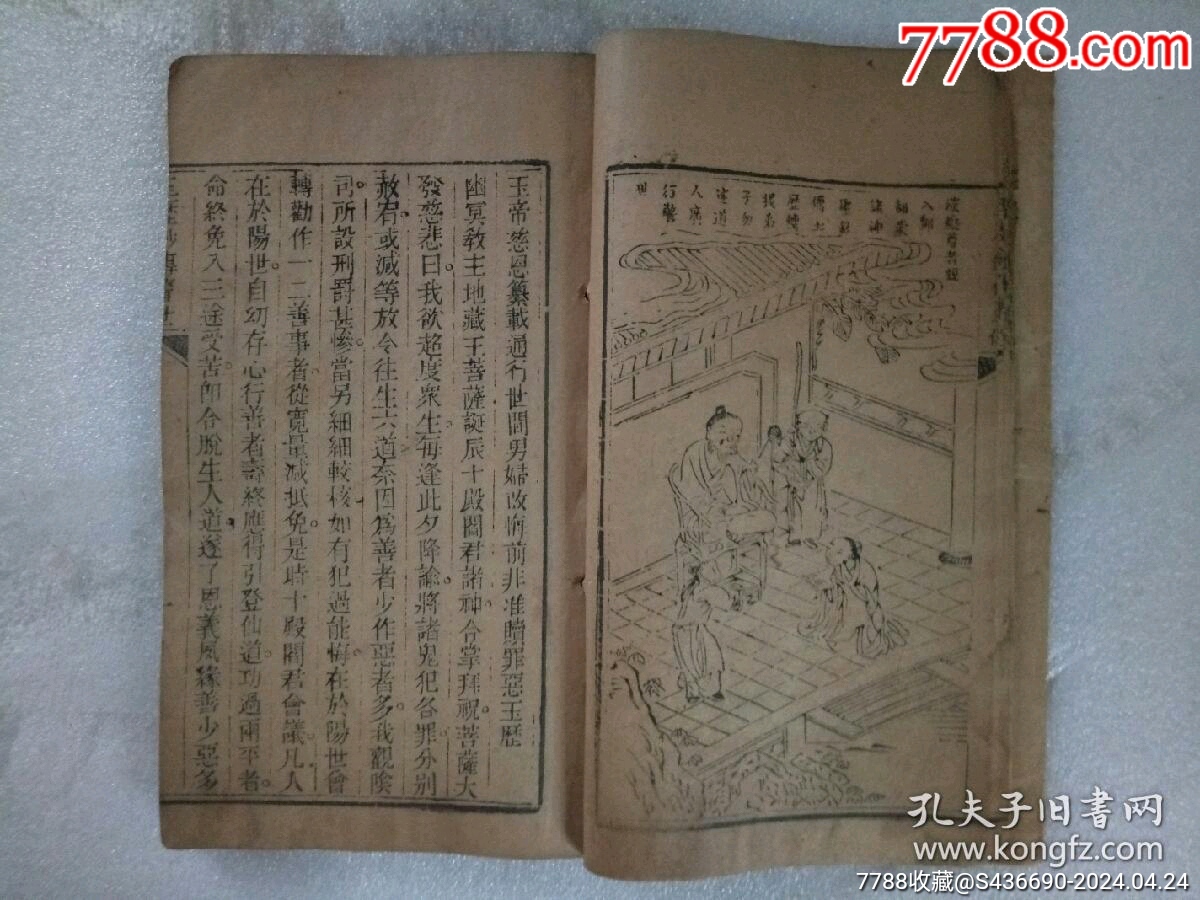 7788.com
行警
人廣
遵道
子勿
歷轉
入酆
玉帝慈恩纂載通行世間男婦改悔前非准贖罪惡玉歷
幽冥教主地藏王菩薩誕辰十殿閻君諸神合掌拜祝菩薩大
發慈悲曰我欲超度衆生每逢此夕降諭將諸鬼犯各罪分别
赦宥或減等放令往生六道奈因為善者少作惡者多我觀陰
司所設刑罰甚慘當另細細較核如有犯過能悔在於陽世會
轉勸作一二善事者從寬量減抵免是時十殿閻君會議凡人
在於陽世自幼存心行善者壽終應得引登仙道功過兩平者
命終免入三途受苦即合脫生人道遂了恩義夙緣善少惡多
孔夫子旧書网
www.kongfz.com
7788收藏@S436690-2024.04.24